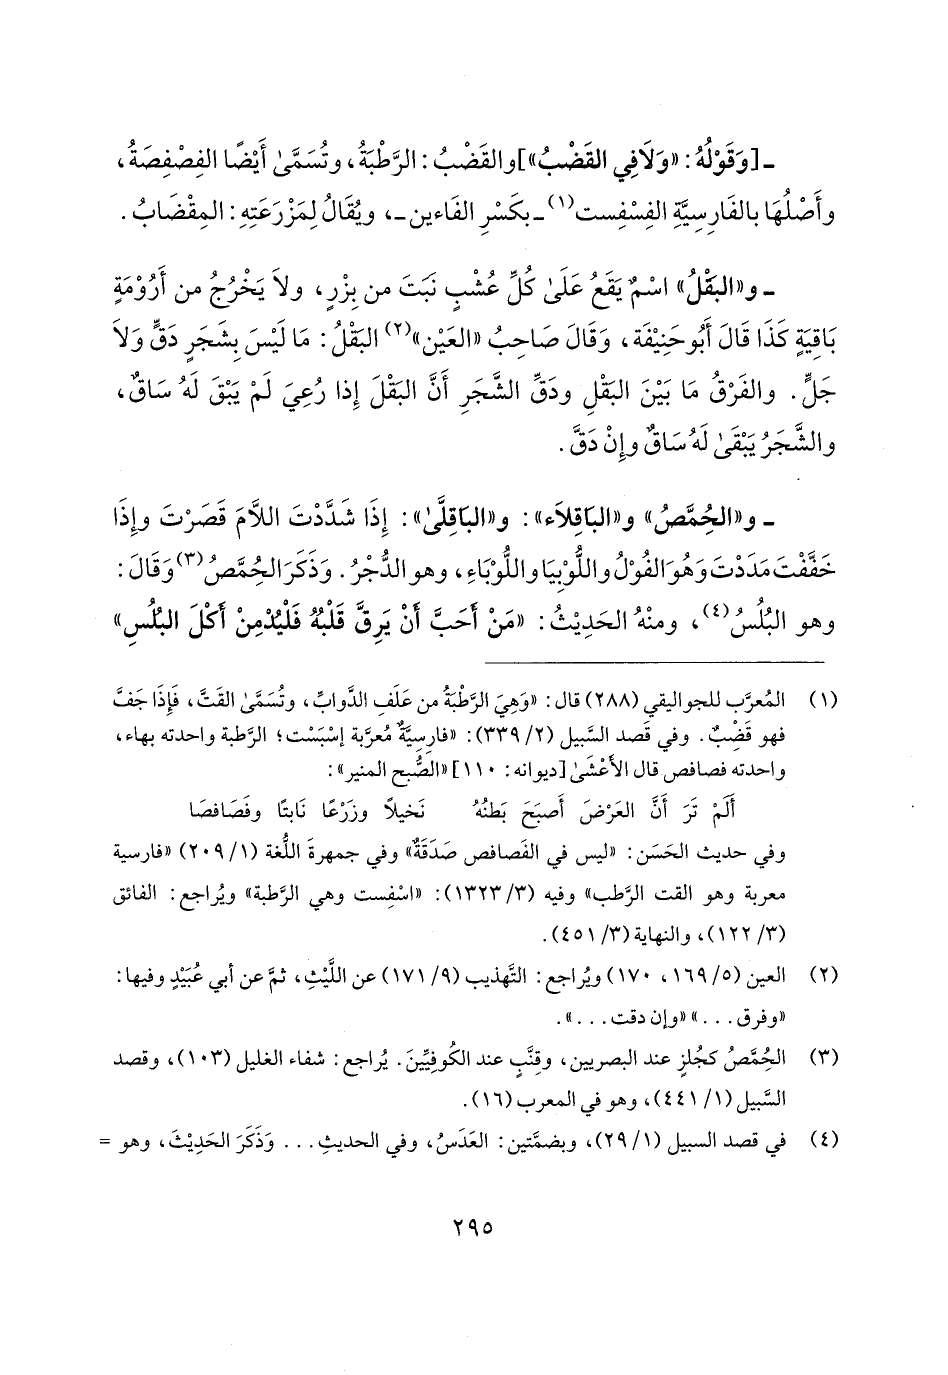 ـ [وَقَوْلُهُ: «وَلَا فِي القَضْبُ»] والقَضْبُ: الرَّطْبَةُ، وتُسَمَّىٰ أَيْضًا الفِصْفِصَةُ،
وأَصْلُهَا بالفَارِسِيَّةِ الفِسْفِست(١) ـ بكَسْرِ الفَاءين ـ، ويُقَالُ لِمَزْرَعَتِهِ: المِقْضَابُ.
ـ و«البَقْلُ» اسْمٌ يَقَعُ عَلَىٰ كُلِّ عُشْبٍ نَبَتَ من بِزْرٍ، ولاَ يَخْرُجُ من أَرُوْمَةٍ
بَاقِيَةٍ كَذَا قَالَ أَبُو حَنِيْفَةَ، وَقَالَ صَاحِبُ «العَيْن»(٢) البَقْلُ: مَا لَيْسَ بِشَجَرٍ دَقٍّ وَلَا
جَلٍّ. والفَرْقُ مَا بَيْنَ البَقْلِ ودَقِّ الشَّجَرِ أَنَّ البَقْلَ إِذا رُعِيَ لَمْ يَبْقَ لَهُ سَاقٌ،
والشَّجَرُ يَبْقَىٰ لَهُ سَاقٌ وإِنْ دَقَّ.
ـ و«الحِمَّصُ» و«البَاقِلاَء»: و«البَاقِلَّىٰ»: إِذَا شَدَّدْتَ اللاَّمَ قَصَرْتَ وإِذَا
خَفَّفْتَ مَدَدْتَ وَهُوَ الفُوْلُ واللُّوْبِيَا واللُّوْبَاءِ، وهو الدُّجْرُ. وَذَكَرَ الحِمَّصُ(٣) وَقَالَ:
وهو البُلُسُ(٤)، ومنْهُ الحَدِيْثُ: «مَنْ أَحَبَّ أَنْ يَرِقَّ قَلْبُهُ فَلْيُدْمِنْ أَكْلَ البُلُسِ»
(١) المُعرَّب للجواليقي (٢٨٨) قال: «وَهِيَ الرَّطْبَةُ من عَلَفِ الدَّوابِّ، وتُسَمَّىٰ القَتَّ، فَإِذَا جَفَّ
فهو قَضْبٌ. وفي قَصد السَّبيل (٢/ ٣٣٩): «فارسِيَّةٌ مُعرَّبة إِسْبَسْت؛ الرَّطبة واحدته بهاء،
واحدته فصافص قال الأَعْشَىٰ [ديوانه: ١١٠] «الصُّبح المنير»:
أَلَمْ تَرَ أَنَّ العَرْضَ أَصبَحَ بَطنُهُ نَخيلاً وزَرْعًا نَابتًا وفَصَافصَا
وفي حديث الحَسَن: «ليس في الفَصافص صَدَقَةٌ» وفي جمهرة اللُّغة (١/ ٢٠٩) «فارسية
معربة وهو القت الرَّطب» وفيه (٣/ ١٣٢٣): «اسْفِست وهي الرَّطبة» ويُراجع: الفائق
(٣/ ١٢٢)، والنهاية (٣/ ٤٥١).
(٢) العين (٥/ ١٦٩، ١٧٠) ويُراجع: التَّهذيب (٩/ ١٧١) عن اللَّيْثِ، ثمَّ عن أبي عُبَيْدٍ وفيها:
«وفرق...» «وإن دقت...».
(٣) الحِمَّصُ كجُلزٍ عند البصريين، وقِنَّبٍ عند الكُوفِيِّينَ. يُراجع: شفاء الغليل (١٠٣)، وقصد
السَّبيل (١/ ٤٤١)، وهو في المعرب (١٦).
(٤) في قصد السبيل (١/ ٢٩)، وبضمَّتين: العَدَسُ، وفي الحديثِ... وَذَكَرَ الحَدِيْثَ، وهو =
٢٩٥